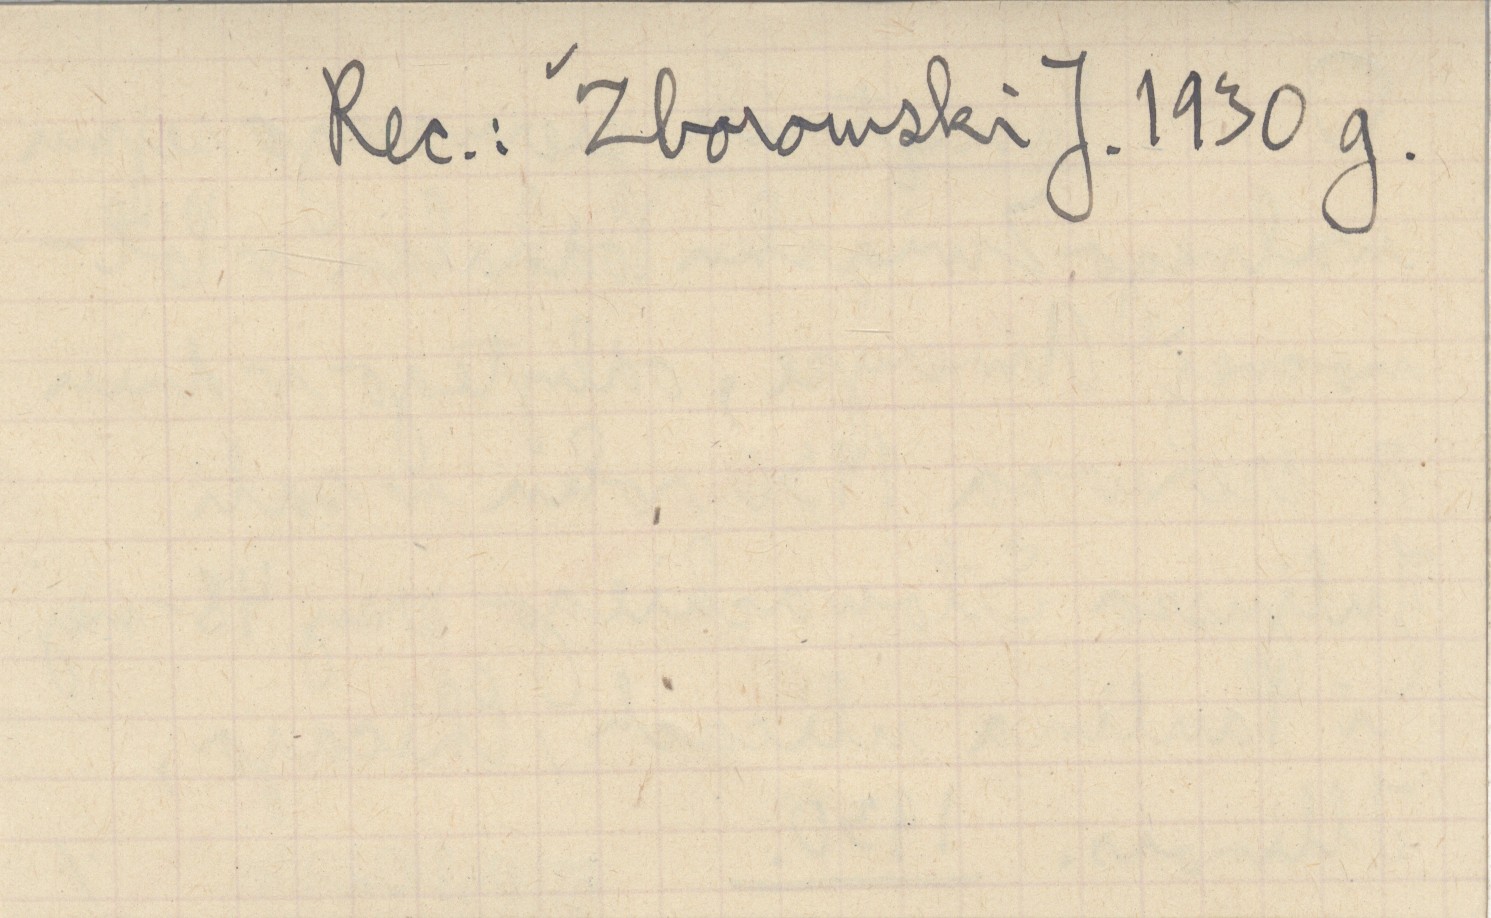 Rec.: Zborowski J. 1930 g.